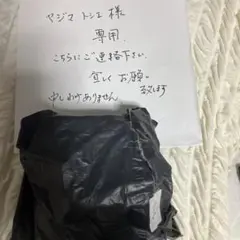 マジマ トシエ 様
専用.
こちらにご連絡下さい.
宜しくお願い
致します
申しわけありません